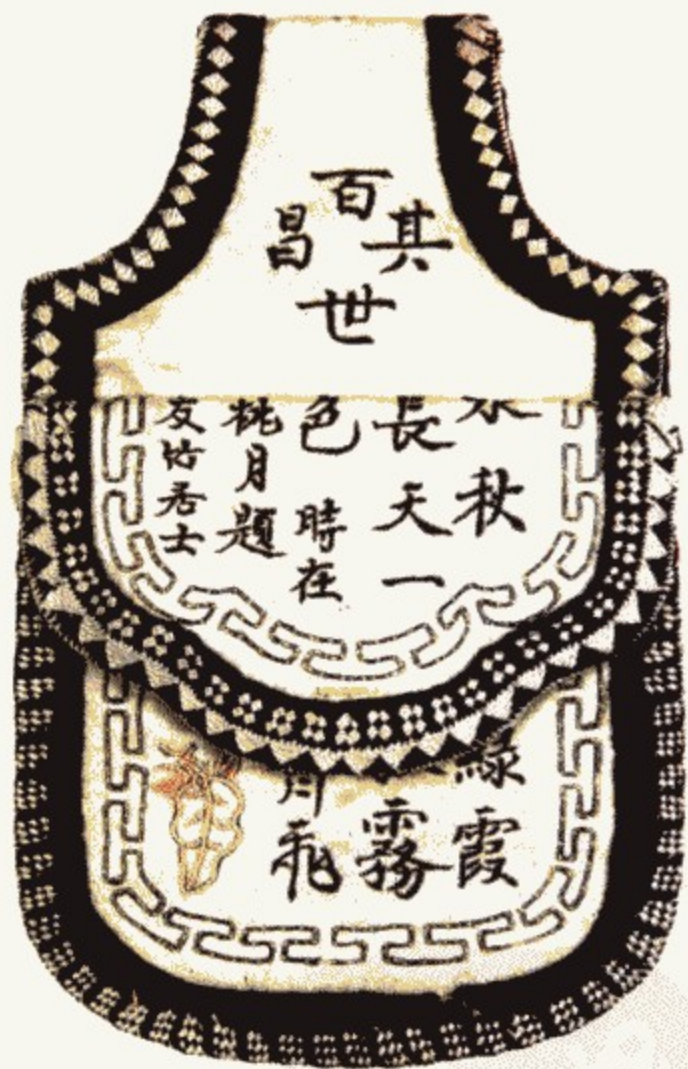 百世其昌
秋
長天一
色 時在
桃月題
友竹居士
綠霞
霧